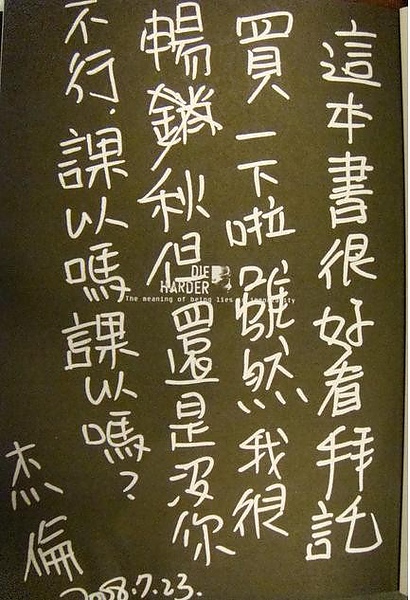 這本書很好看拜託
買一下啦,雖然我很
暢秋但還是沒你
不行.課以嗎課以嗎?
杰倫
2008.7.23.
DIE
HARDER
The meaning of being lies